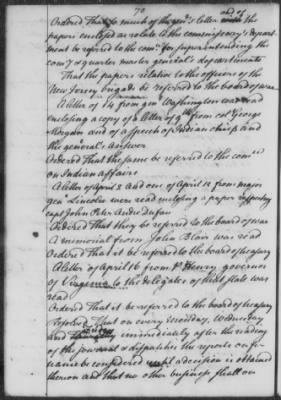 70
and of
Ordered That so much of the genl's letter the
papers enclosed as relate to the commissary's depart
ment be referred to the come for superintending the
comy & quarter master general's departments
That the papers relative to the officers of the
New Jersey brigade be referred to the board of war
A letter of 14 from gen Washington was read
enclosing a copy of a letter of 9th from col George
Morgan and of a speech of Indian chiefs and
the general's answer
Ordered That the same be referred to the comee
on Indian affairs
A letter of April 2 and one of April 12 from major
genl Lincoln were read enclosing a paper respecting
capt John Peter Andre
Ordered That they be referred to the board of war
A memorial from John Blair was read
Ordered That it be referred to the board of treasury
A letter of April 16 from P Henry governor
of Virginia to the delegates of that state was
read
Ordered That it be referred to the board of treasury
Resolved That on every monday, Wednesday
and immediately after the reading
of the journal & dispatches the reports on fi-
nance be considered until a decision is obtained
thereon and that no other business shall on